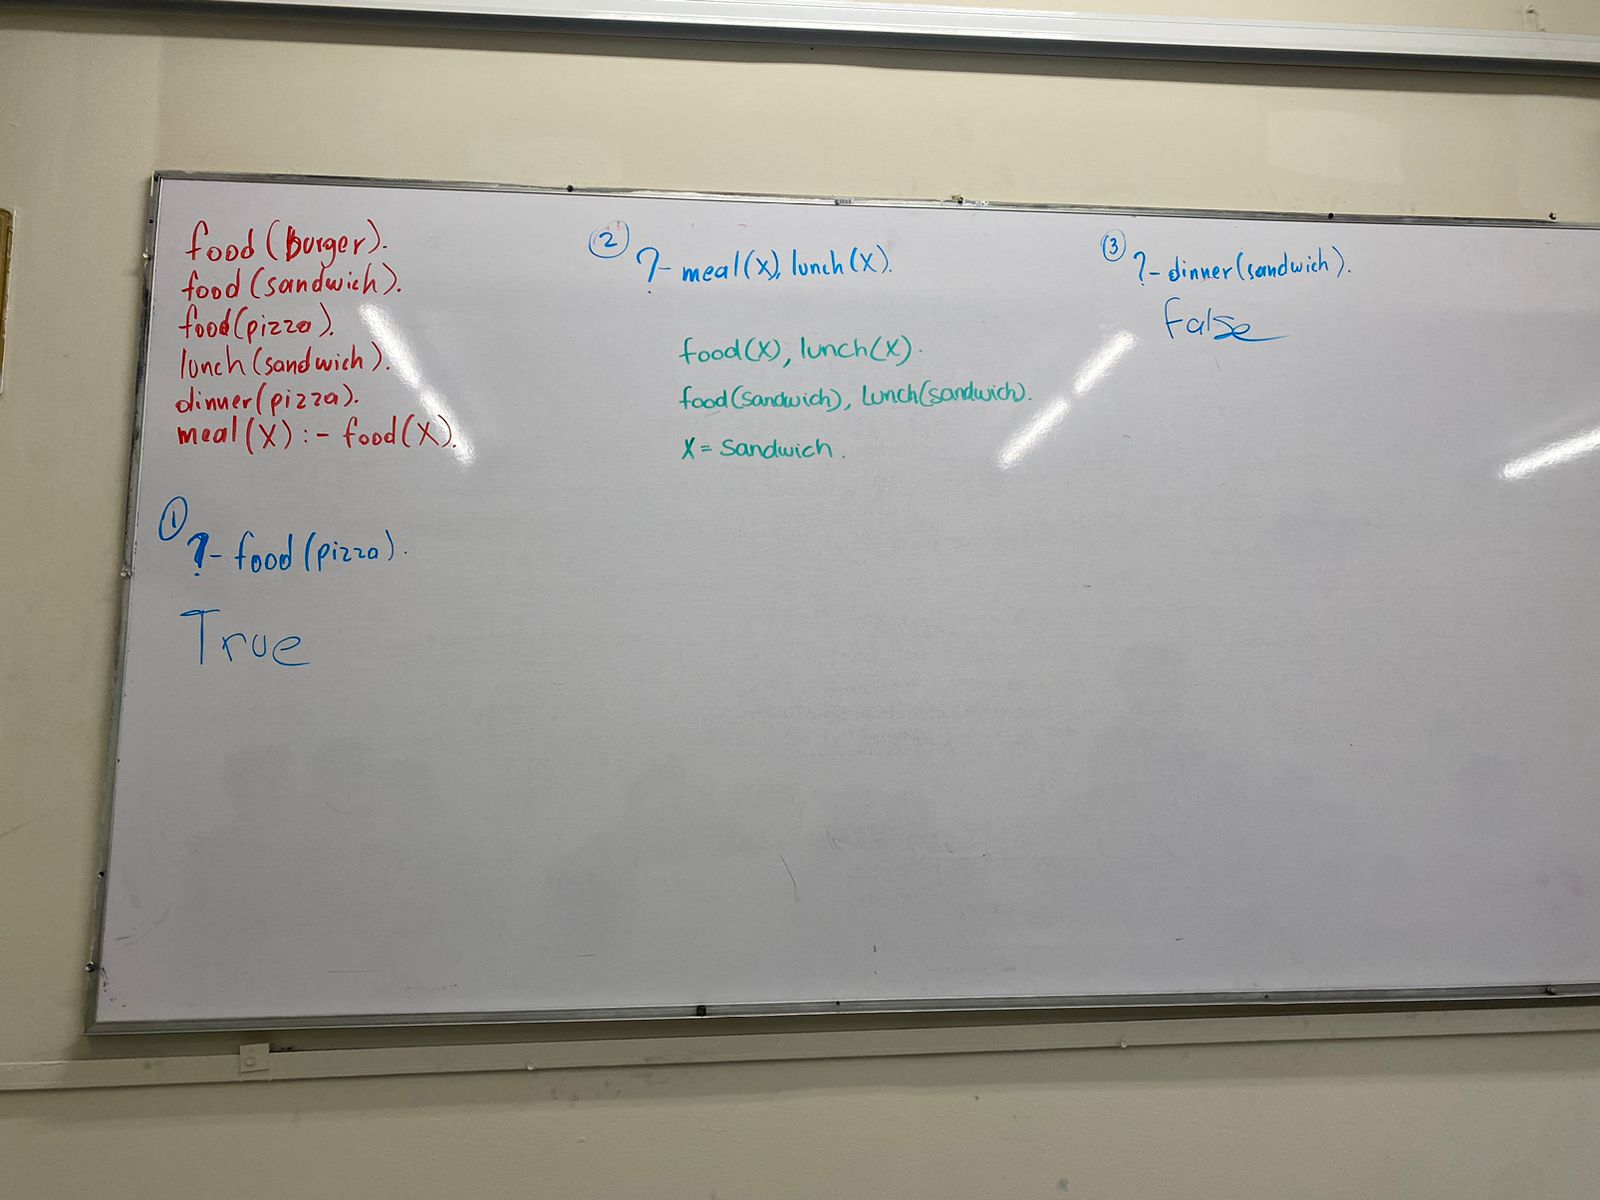 food (Burger).
food (sandwich).
food (pizza).
lunch (sandwich).
dinner (pizza).
meal (X) :- food (X).
①
?- food (pizza).
True
②
?- meal (X), lunch (X).
food (X), lunch (X).
food (sandwich), lunch (sandwich).
X = Sandwich.
③
?- dinner (sandwich).
False